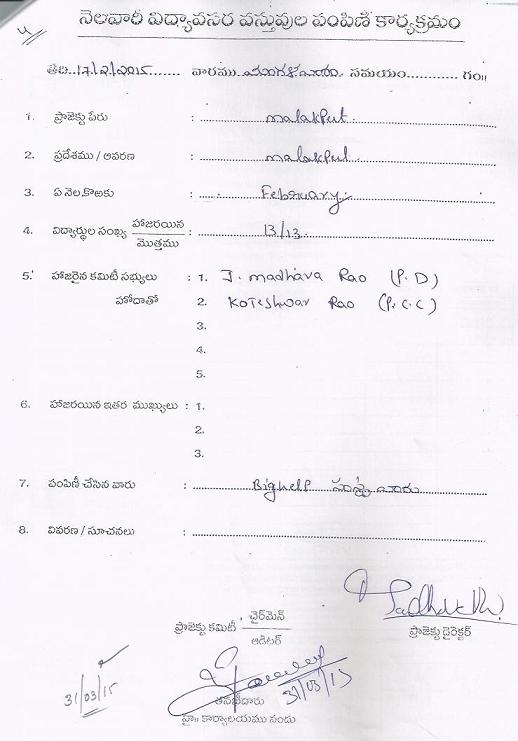 4
నెలవారీ విద్యావసర వస్తువుల పంపిణీ కార్యక్రమం
తేది.17/2/2015....... వారము మంగళవారం. సమయం............ గం॥
1. ప్రాజెక్టు పేరు : malakpet.
2. ప్రదేశము / ఆవరణ : malakpet.
3. ఏ నెల.కొఱకు : February.
4. విద్యార్థుల సంఖ్య హాజరయిన / మొత్తము : 13/13
5. హాజరైన కమిటీ సభ్యులు : 1. J. madhava Rao (P.D)
హోదాతో 2. Koteshwar Rao (P.C.C)
3.
4.
5.
6. హాజరయిన ఇతర ముఖ్యులు : 1.
2.
3.
7. పంపిణీ చేసిన వారు : Bighelp సంస్థ వారు
8. వివరణ / సూచనలు :
ప్రాజెక్టు కమిటీ చైర్‌మెన్ / ఆడిటర్
ప్రాజెక్టు డైరెక్టర్
31/03/15
31/03/15
తనిఖీదారు
హై॥ కార్యాలయము నందు